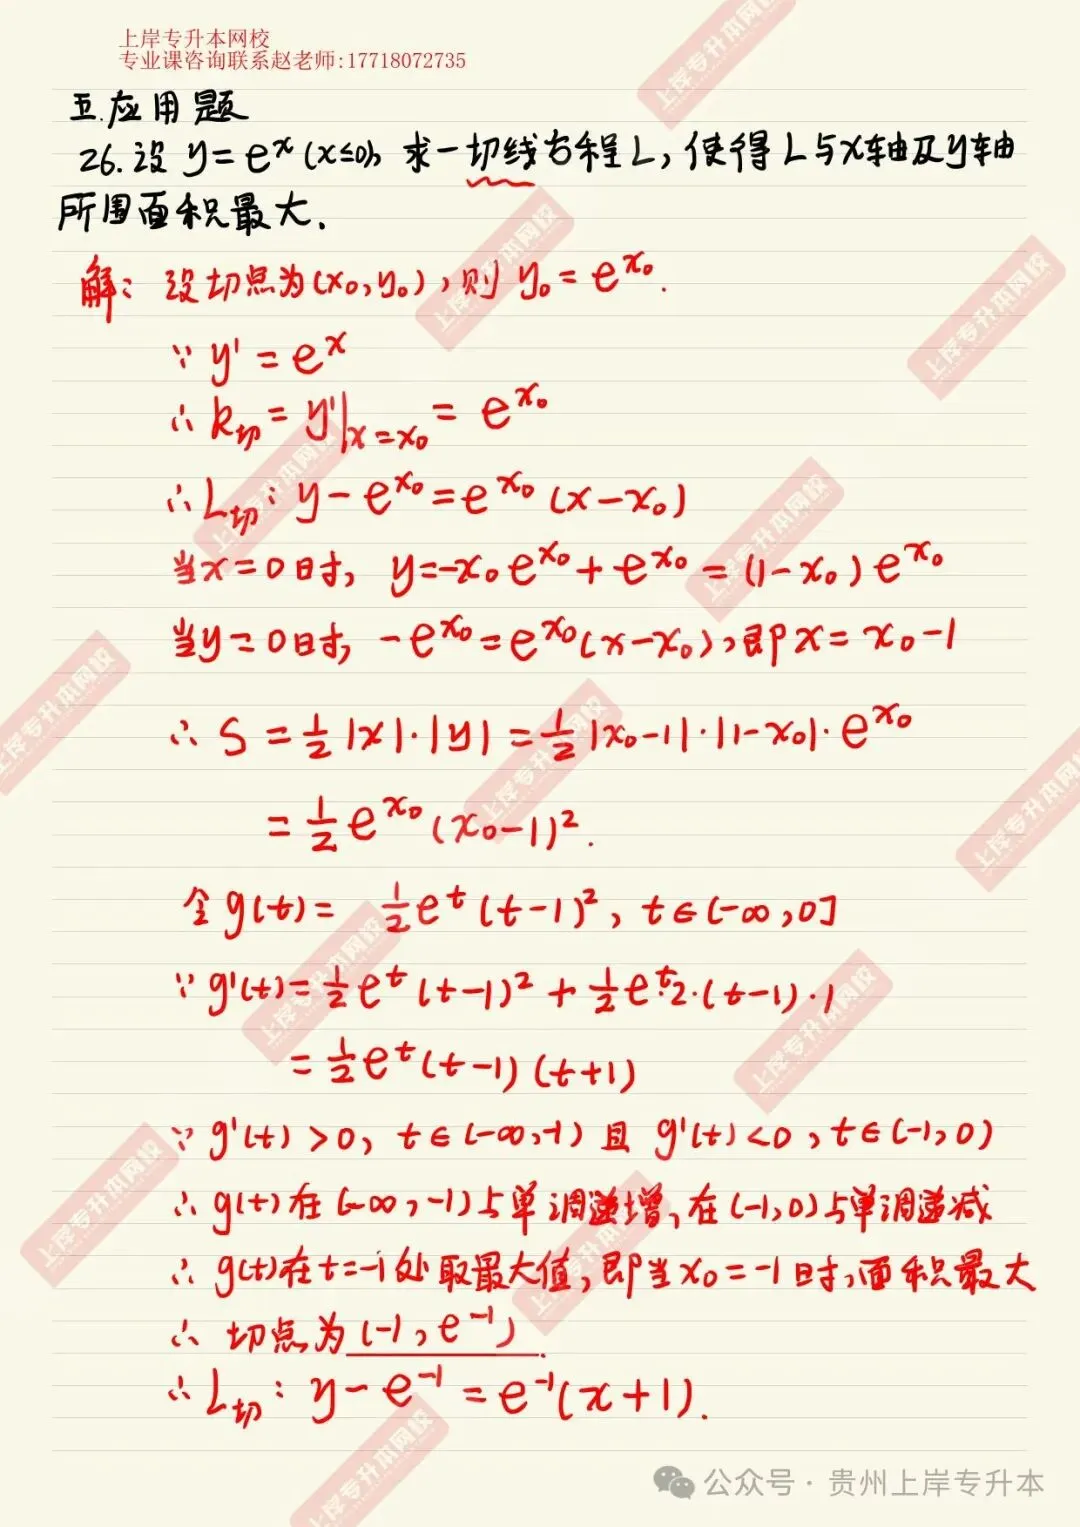 上岸专升本网校
专业课咨询联系赵老师:17718072735
五.应用题
26.设 y=e^x (x≤0), 求一切线方程L, 使得L与x轴及y轴
所围面积最大.
解: 设切点为(x₀,y₀), 则 y₀=e^{x₀}.
∵ y'=e^x
∴ k切=y'|x=x₀ = e^{x₀}
∴ L切: y-e^{x₀}=e^{x₀}(x-x₀)
当x=0时, y=-x₀e^{x₀}+e^{x₀}=(1-x₀)e^{x₀}
当y=0时, -e^{x₀}=e^{x₀}(x-x₀), 即x=x₀-1
∴ S=½|x|·|y|=½|x₀-1|·|1-x₀|·e^{x₀}
=½e^{x₀}(x₀-1)².
令g(t)= ½e^t(t-1)², t∈(-∞,0]
∵ g'(t)=½e^t(t-1)²+½e^t·2·(t-1)·1
=½e^t(t-1)(t+1)
∵ g'(t)>0, t∈(-∞,-1) 且 g'(t)<0, t∈(-1,0)
∴ g(t)在(-∞,-1)与单调递增, 在(-1,0)与单调递减
∴ g(t)在t=-1处取最大值, 即当x₀=-1时, 面积最大
∴ 切点为(-1, e^{-1}).
∴ L切: y-e^{-1}=e^{-1}(x+1).
公众号·贵州上岸专升本